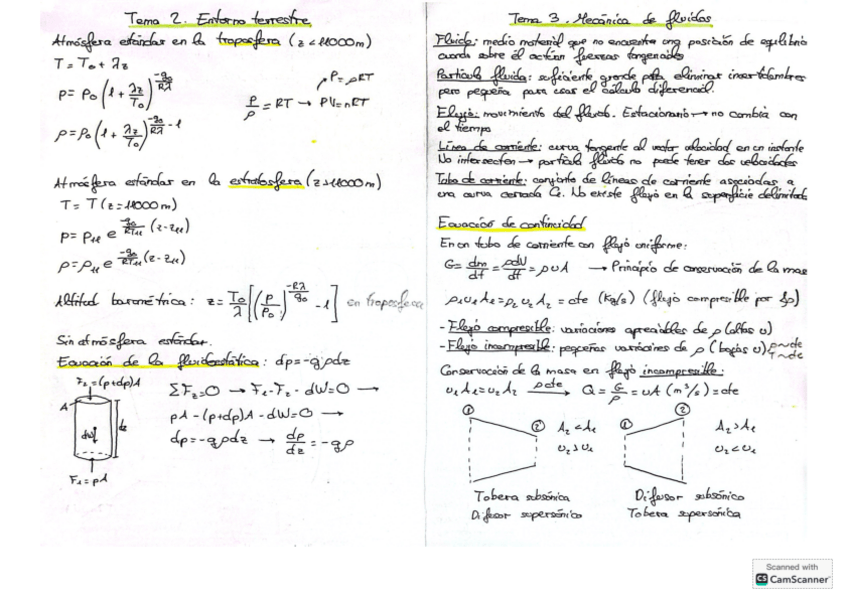 Tema 2. Entorno terrestre
Atmósfera estándar en la troposfera (z < 11000m)
T = T₀ + λz
p = p₀ (1 + λz/T₀)^(-g₀/Rλ)
p/ρ = RT → PV = nRT
P = ρRT
ρ = ρ₀ (1 + λz/T₀)^(-g₀/Rλ - 1)
Atmósfera estándar en la estratosfera (z > 11000m)
T = T(z = 11000m)
p = p₁₁ e^(-g₀/RT₁₁ (z - z₁₁))
ρ = ρ₁₁ e^(-g₀/RT₁₁ (z - z₁₁))
Altitud barométrica: z = T₀/λ [(p/p₀)^(-Rλ/g₀) - 1] en troposfera
Sin atmósfera estándar.
Ecuación de la fluidostática: dp = -gρdz
F₂ = (p+dp)A
A
dW
dz
F₁ = pA
ΣF_z = 0 → F₁ - F₂ - dW = 0 →
pA - (p+dp)A - dW = 0 →
dp = -gρdz → dp/dz = -gρ
Tema 3. Mecánica de fluidos
Fluido: medio material que no encuentra una posición de equilibrio
cuando sobre él actúan fuerzas tangenciales
Partícula fluida: suficiente grande para eliminar incertidumbres
pero pequeña para usar el cálculo diferencial.
Flujo: movimiento del fluido. Estacionario → no cambia con
el tiempo
Línea de corriente: curva tangente al vector velocidad en un instante
No intersectan → partícula fluida no puede tener dos velocidades
Tubo de corriente: conjunto de líneas de corriente asociadas a
una curva cerrada C. No existe flujo en la superficie delimitada
Ecuación de continuidad
En un tubo de corriente con flujo uniforme:
G = dm/dt = ρdV/dt = ρυA → Principio de conservación de la masa
ρ₁υ₁A₁ = ρ₂υ₂A₂ = cte (kg/s) (flujo compresible por
- Flujo compresible: variaciones apreciables de ρ (altas υ)
- Flujo incompresible: pequeñas variaciones de ρ (bajas υ)
Conservación de la masa en flujo incompresible:
υ₁A₁ = υ₂A₂ ρcte → Q = G/ρ = υA (m³/s) = cte
① ② A₂ < A₁
υ₂ > υ₁
① ② A₂ > A₁
υ₂ < υ₁
Tobera subsónica
Difusor supersónico
Difusor subsónico
Tobera supersónica
Scanned with
CS CamScanner